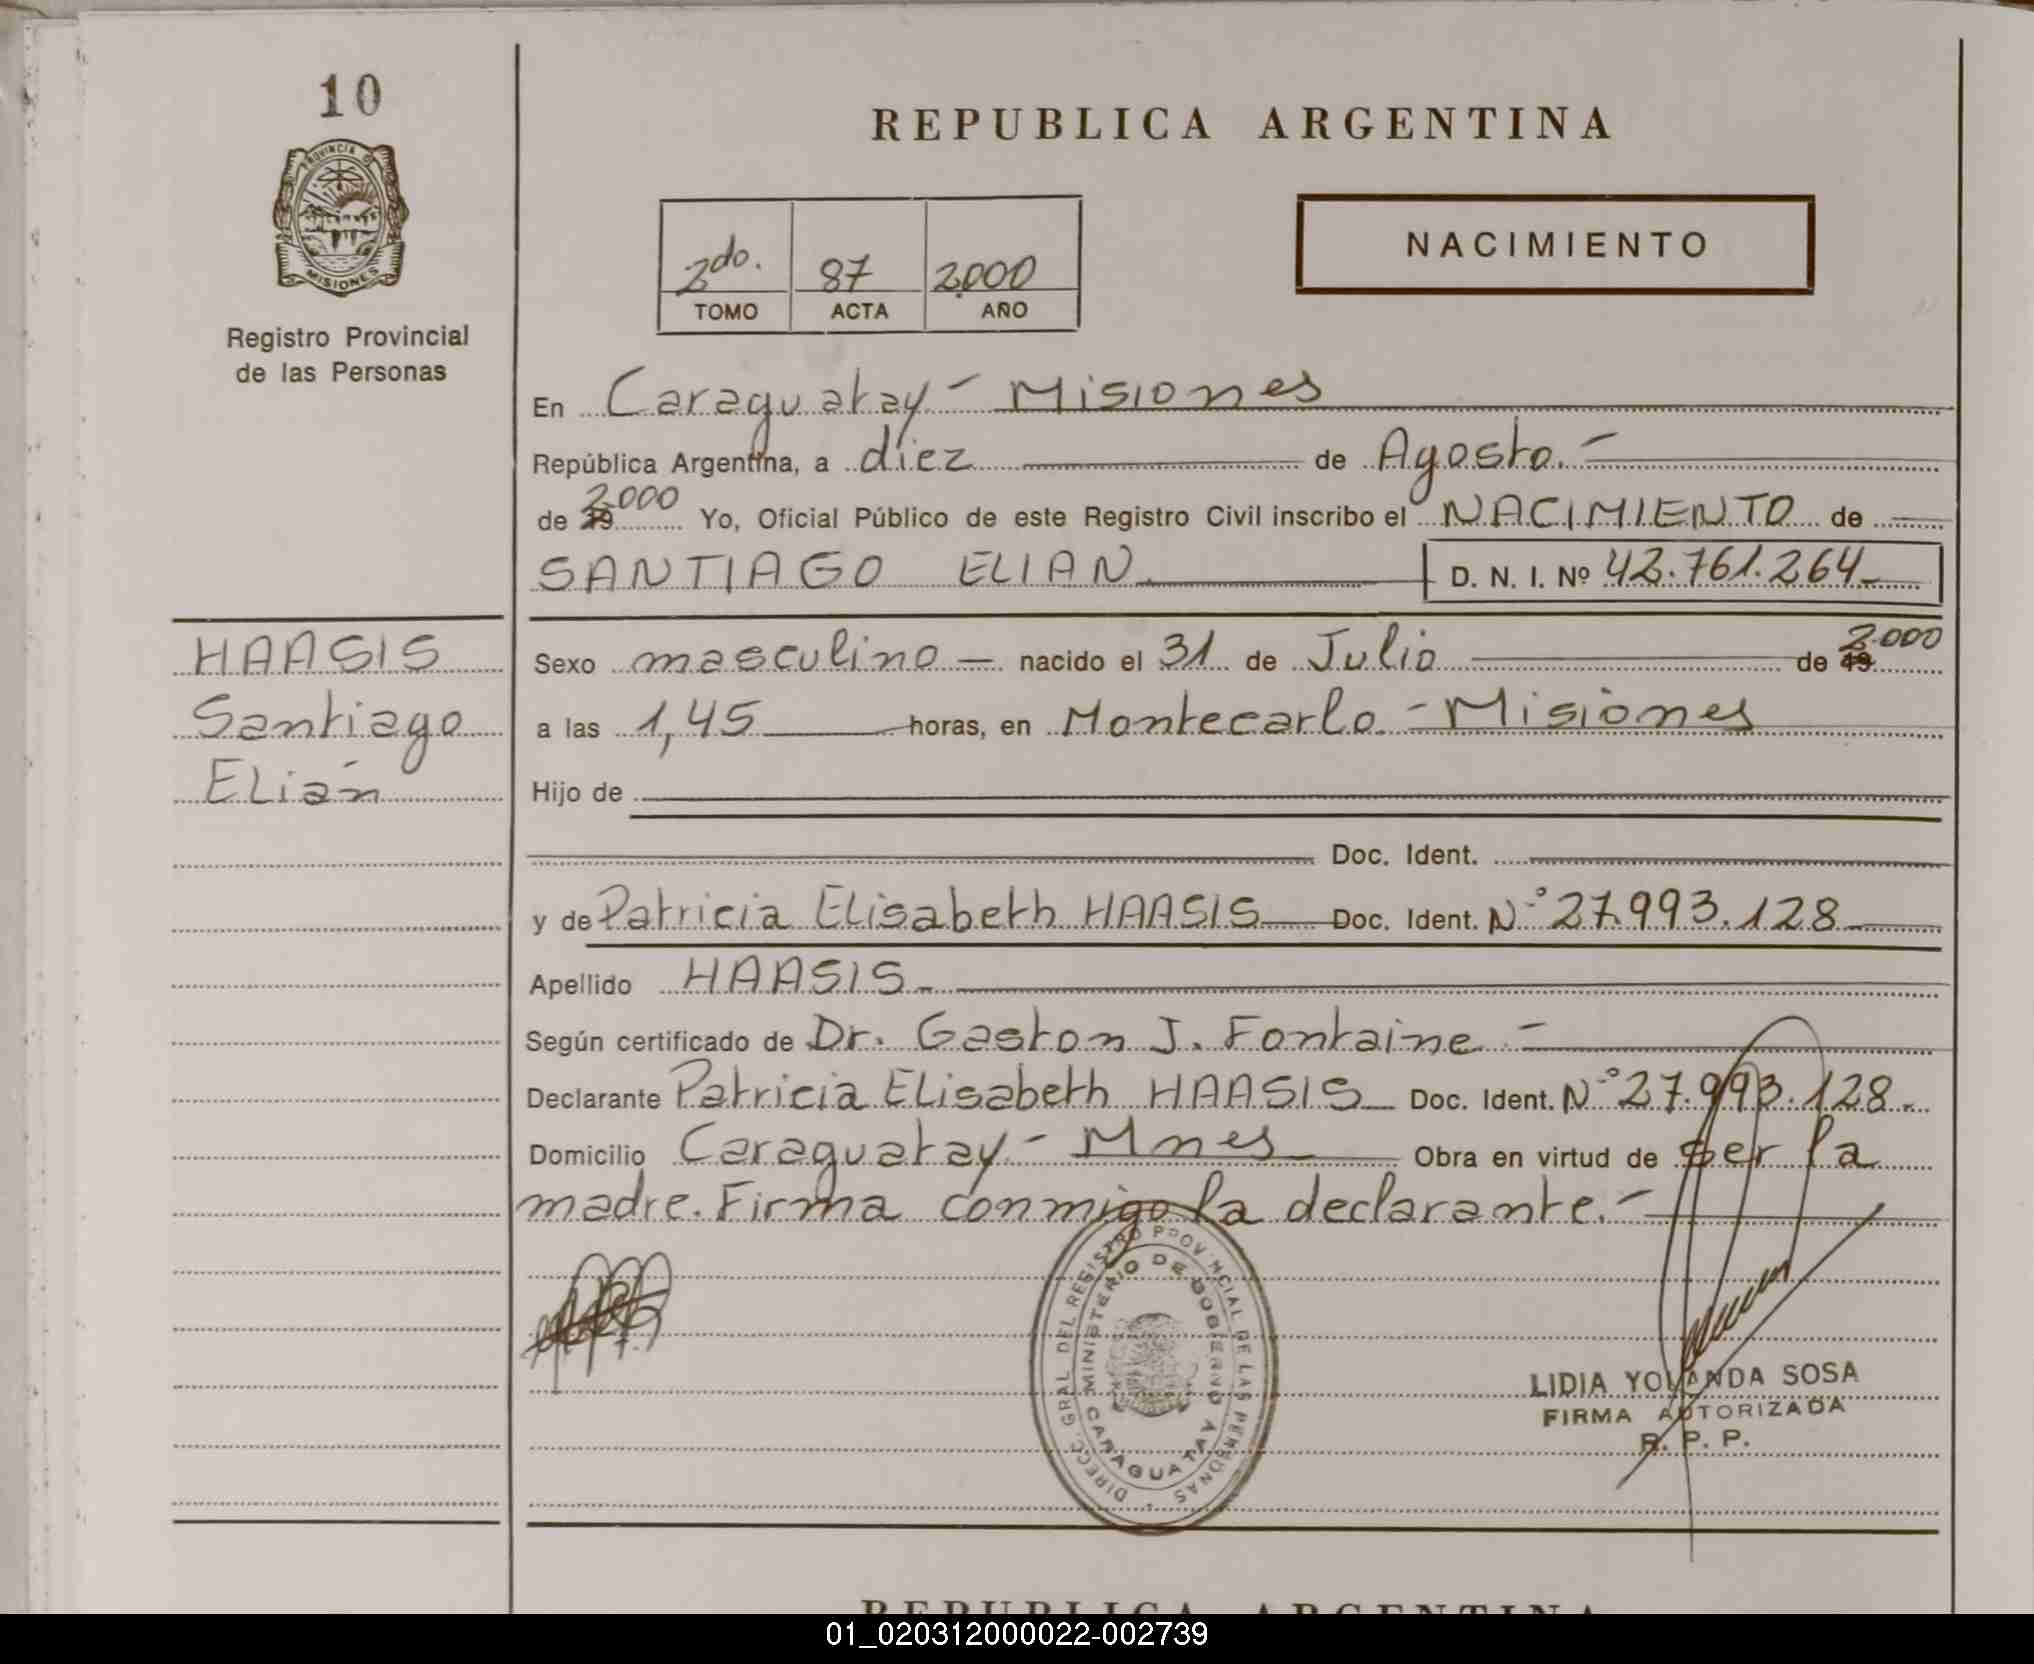 10
PROVINCIA D
MISIONES
Registro Provincial
de las Personas
REPUBLICA ARGENTINA
2do. 87 2.000
TOMO ACTA AÑO
NACIMIENTO
En Caraguatay - Misiones
República Argentina, a diez de Agosto.-
de 19 2.000 Yo, Oficial Público de este Registro Civil inscribo el NACIMIENTO de
SANTIAGO ELIAN D. N. I. Nº 42.761.264-
HAASIS
Santiago
Elián
Sexo masculino - nacido el 31 de Julio de 19 2.000
a las 1,45 horas, en Montecarlo.- Misiones
Hijo de
Doc. Ident.
y de Patricia Elisabeth HAASIS Doc. Ident. N° 27.993.128
Apellido HAASIS.-
Según certificado de Dr. Gaston J. Fontaine.-
Declarante Patricia Elisabeth HAASIS Doc. Ident. N° 27.993.128.-
Domicilio Caraguatay - Mnes Obra en virtud de ser la
madre. Firma conmigo la declarante.-
DIRECC. GRAL DEL REGISTRO PROVINCIAL DE LAS PERSONAS
MINISTERIO DE GOBIERNO
CARAGUATAY
LIDIA YOLANDA SOSA
FIRMA AUTORIZADA
R. P. P.
REPUBLICA ARGENTINA
01_020312000022-002739